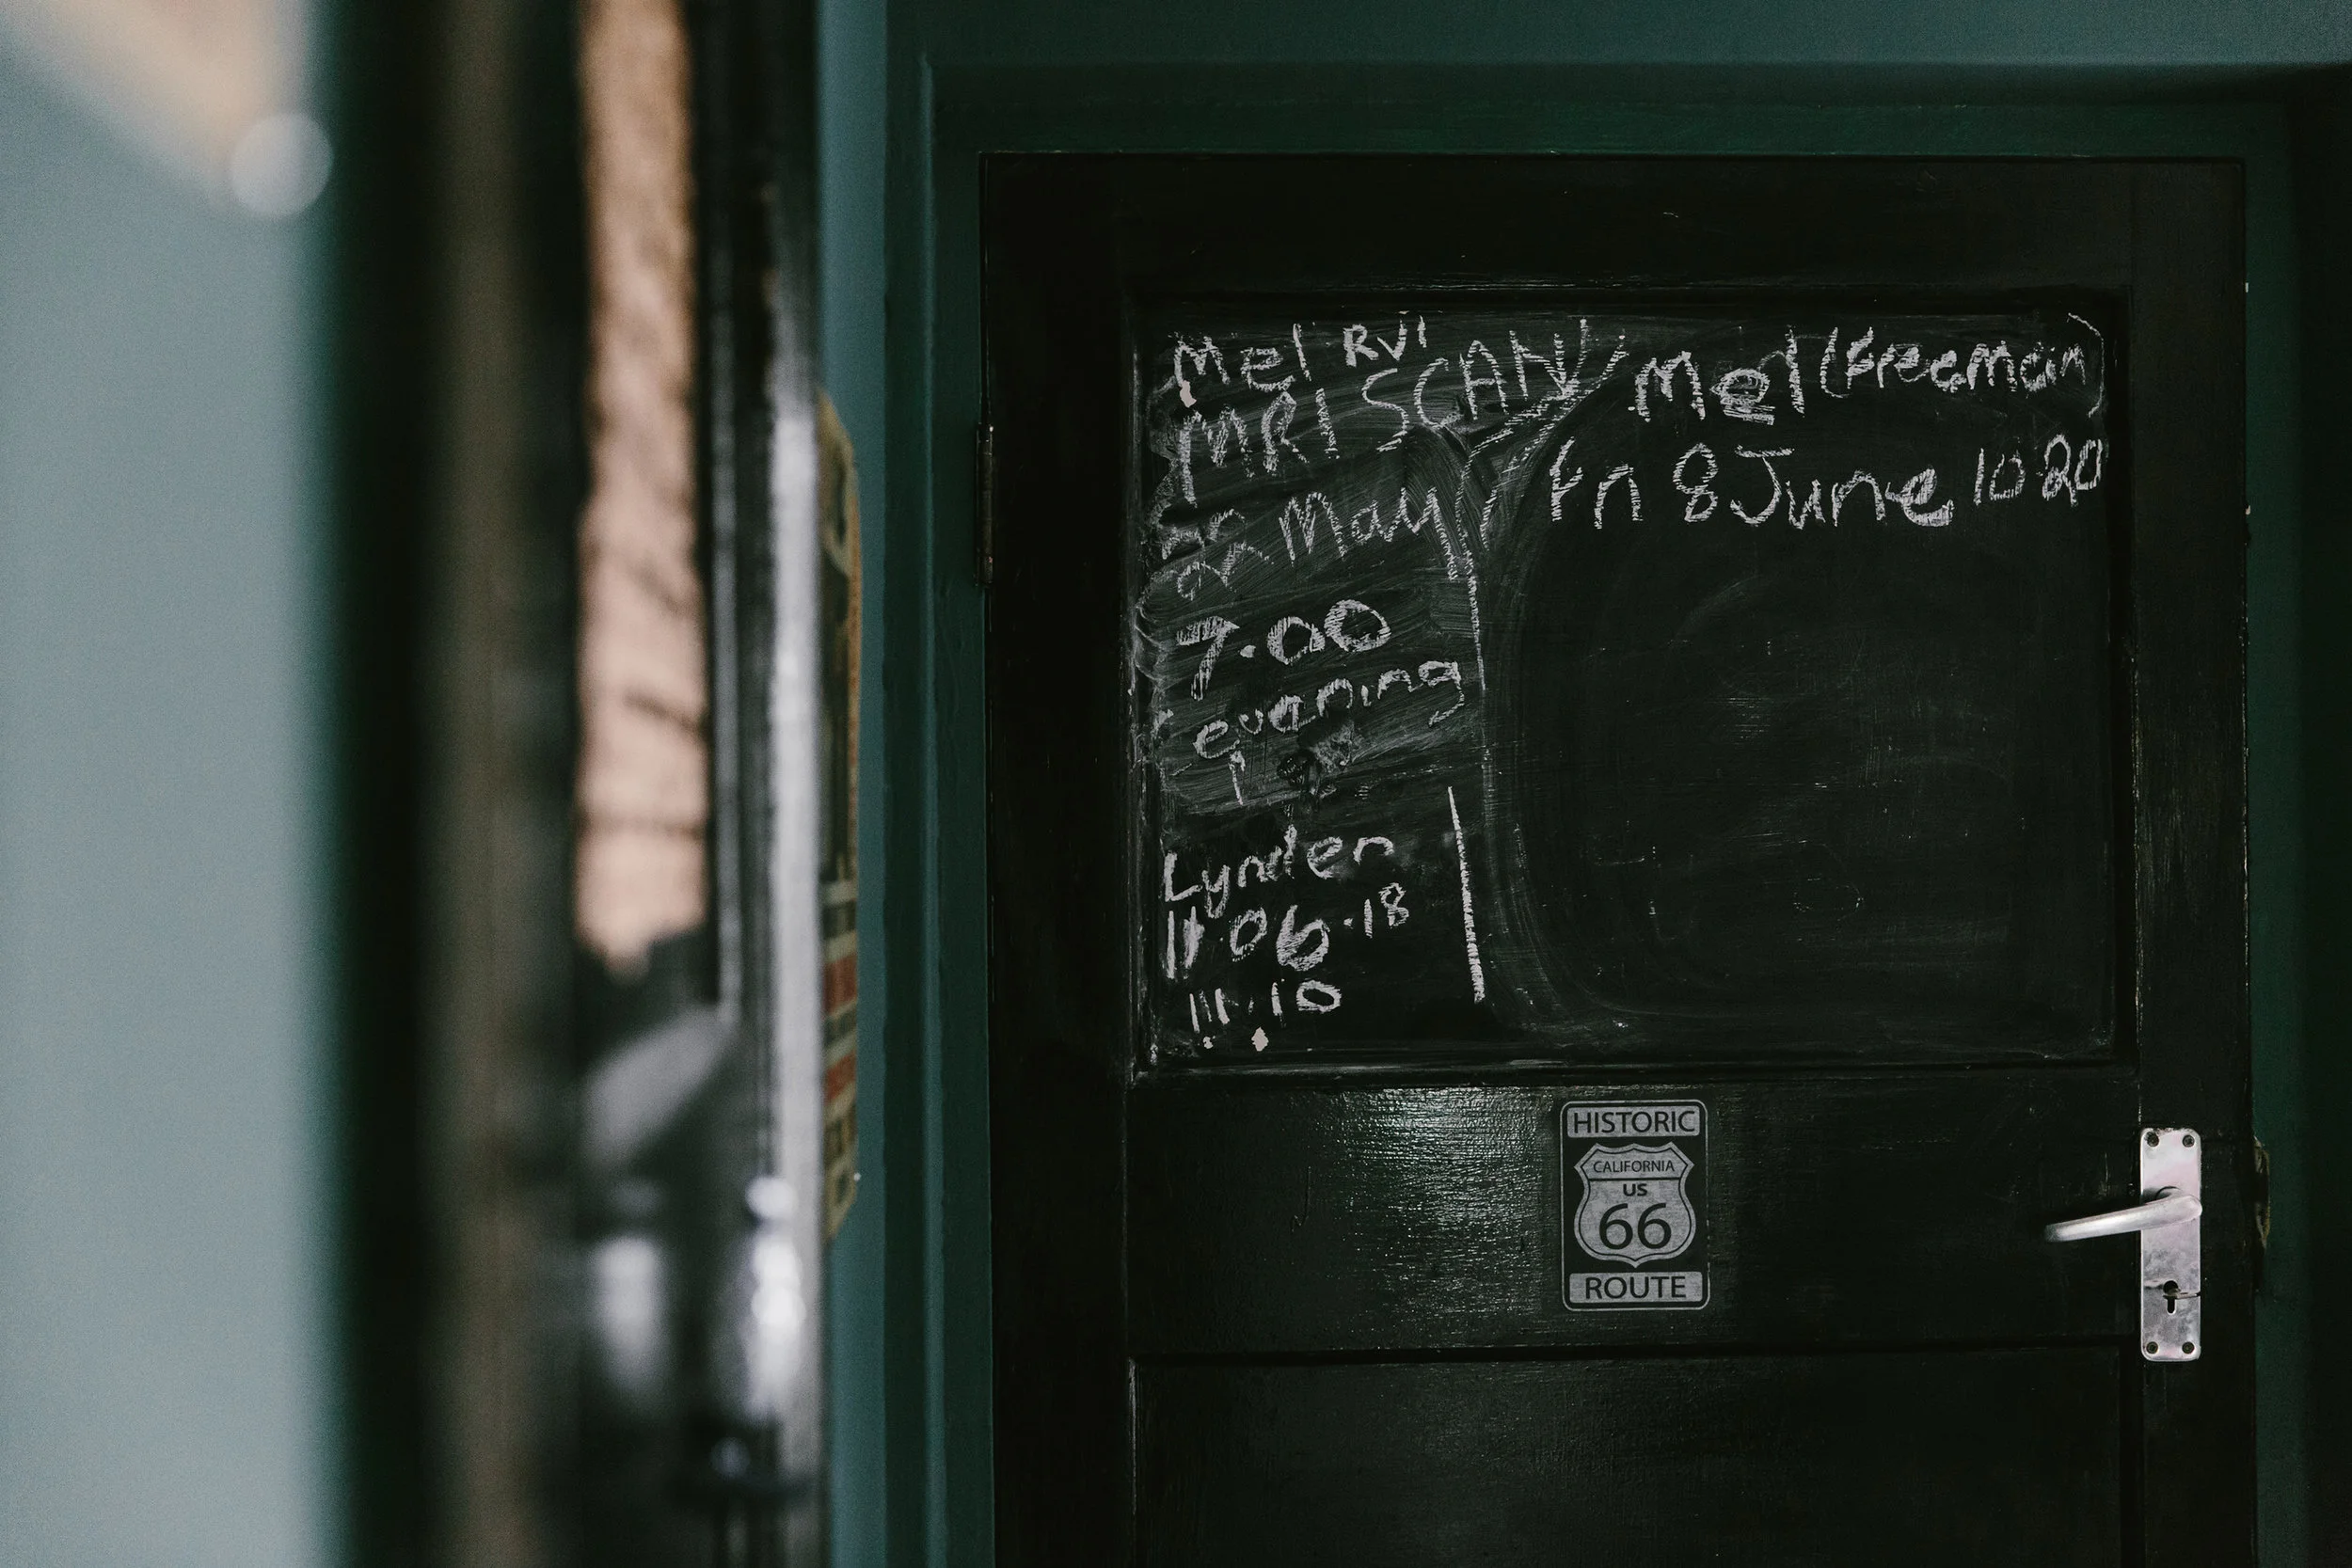 Mel RVI
MRI SCAN
22 May
7.00
evening
Lynden
11.06.18
11.10
Mel (freeman)
Fri 8 June 10 20
HISTORIC
CALIFORNIA
US
66
ROUTE